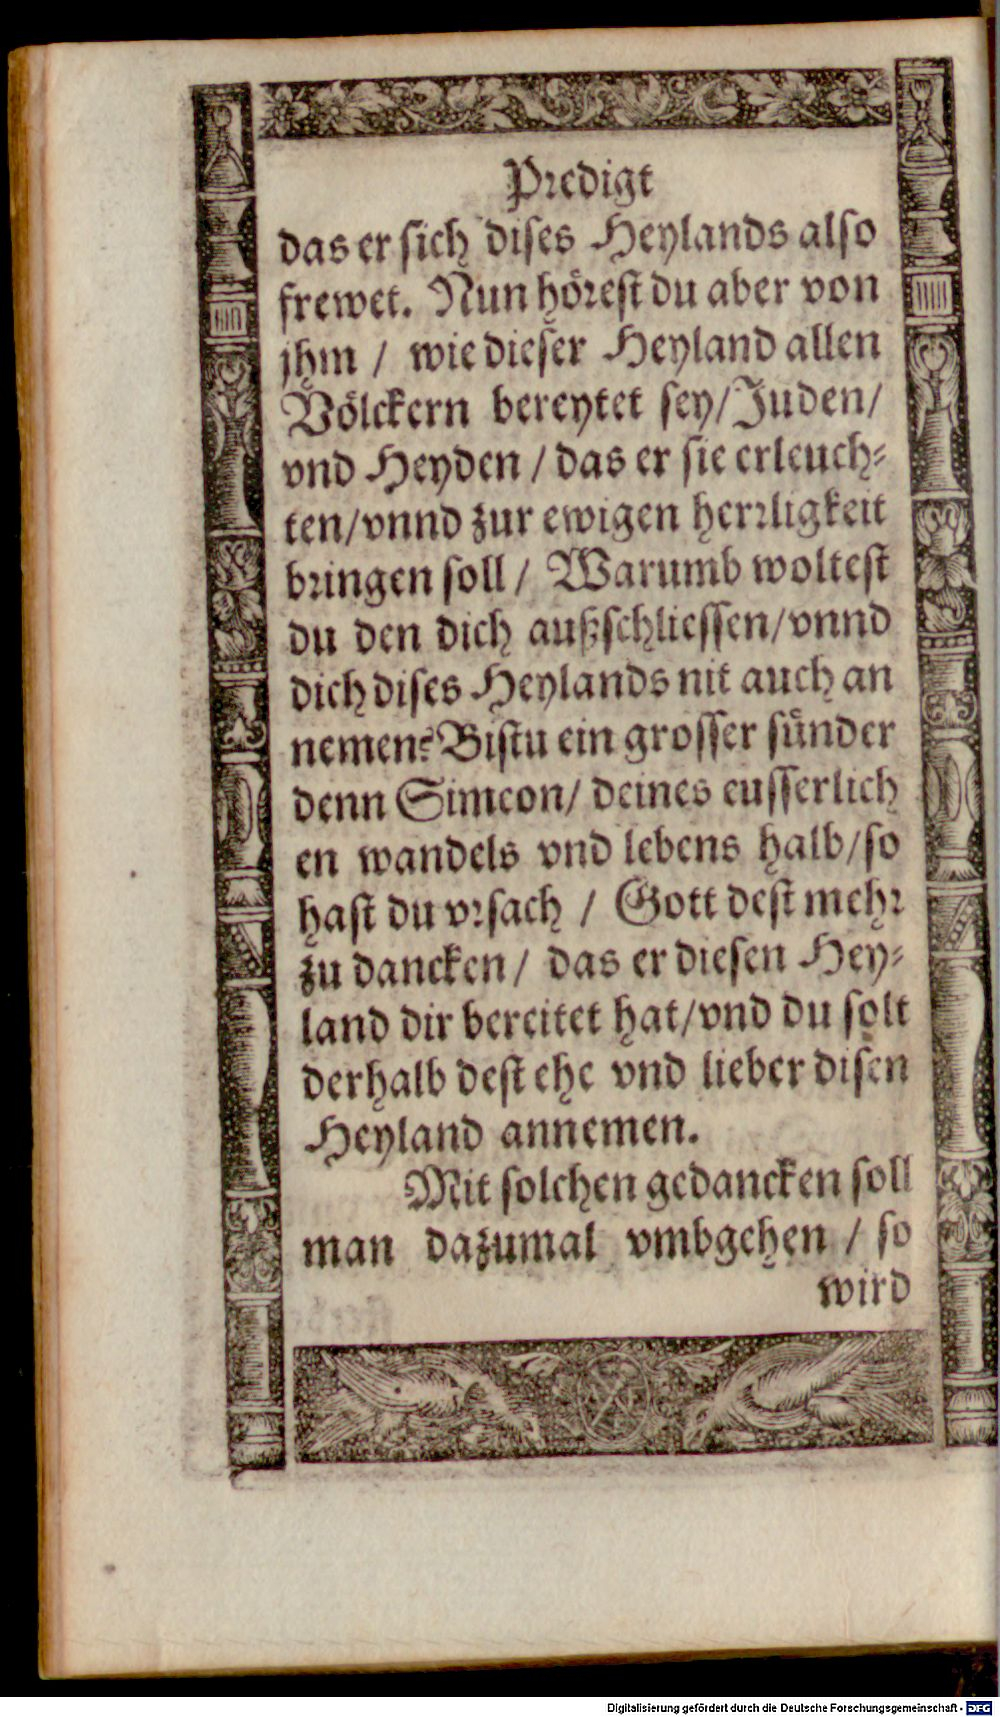 Predigt
das er sich dises Heylands also
frewet. Nun hörest du aber von
jhm / wie dieser Heyland allen
Völckern bereytet sey/Juden/
vnd Heyden / das er sie erleuch-
ten/vnnd zur ewigen herrligkeit
bringen soll / Warumb woltest
du den dich außschliessen/vnnd
dich dises Heylands nit auch an
nemen? Bistu ein grosser sünder
denn Simeon/ deines eusserlich
en wandels vnd lebens halb/so
hast du vrsach / Gott dest mehr
zu dancken/ das er diesen Hey-
land dir bereitet hat/vnd du solt
derhalb dest ehe vnd lieber disen
Heyland annemen.
Mit solchen gedancken soll
man dazumal vmbgehen / so
wird
Digitalisierung gefördert durch die Deutsche Forschungsgemeinschaft - DFG